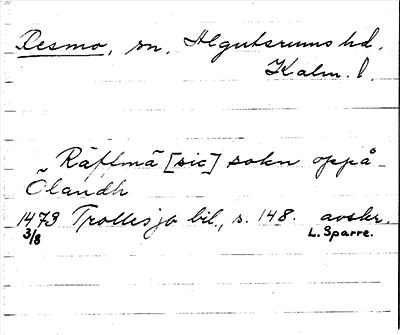 Resmo, sn, Algutsrums hd,
Kalm. l.
Räffmä [sic] sokn oppå
Ölandh
1473 Trollesja bil., s. 148. avskr.
3/8 L. Sparre.